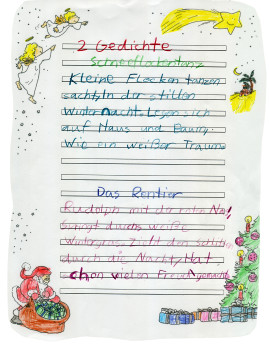 2 Gedichte
Schneeflockentanz
Kleine Flocken tanzen
sacht, In der stillen
Winternacht. Legen sich
auf Haus und Baum,
Wie ein weißer Traum
Das Rentier
Rudolph mit der roten Nas',
springt durchs weiße
Wintergras. Zieht den Schlitten
durch die Nacht, Hat
schon vielen Freude gemacht